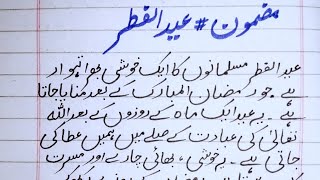 مضمون # عید الفطر
عید الفطر مسلمانوں کا ایک خوشی بھرا تہوار
ہے جو رمضان المبارک کے بعد منایا جاتا
ہے ۔ یہ عید ایک ماہ کے روزوں کے بعد اللہ
تعالیٰ کی عبادت کے صلے میں ہمیں عطا کی
جاتی ہے ۔ یہ خوشی ، بھائی چارے اور مسرت